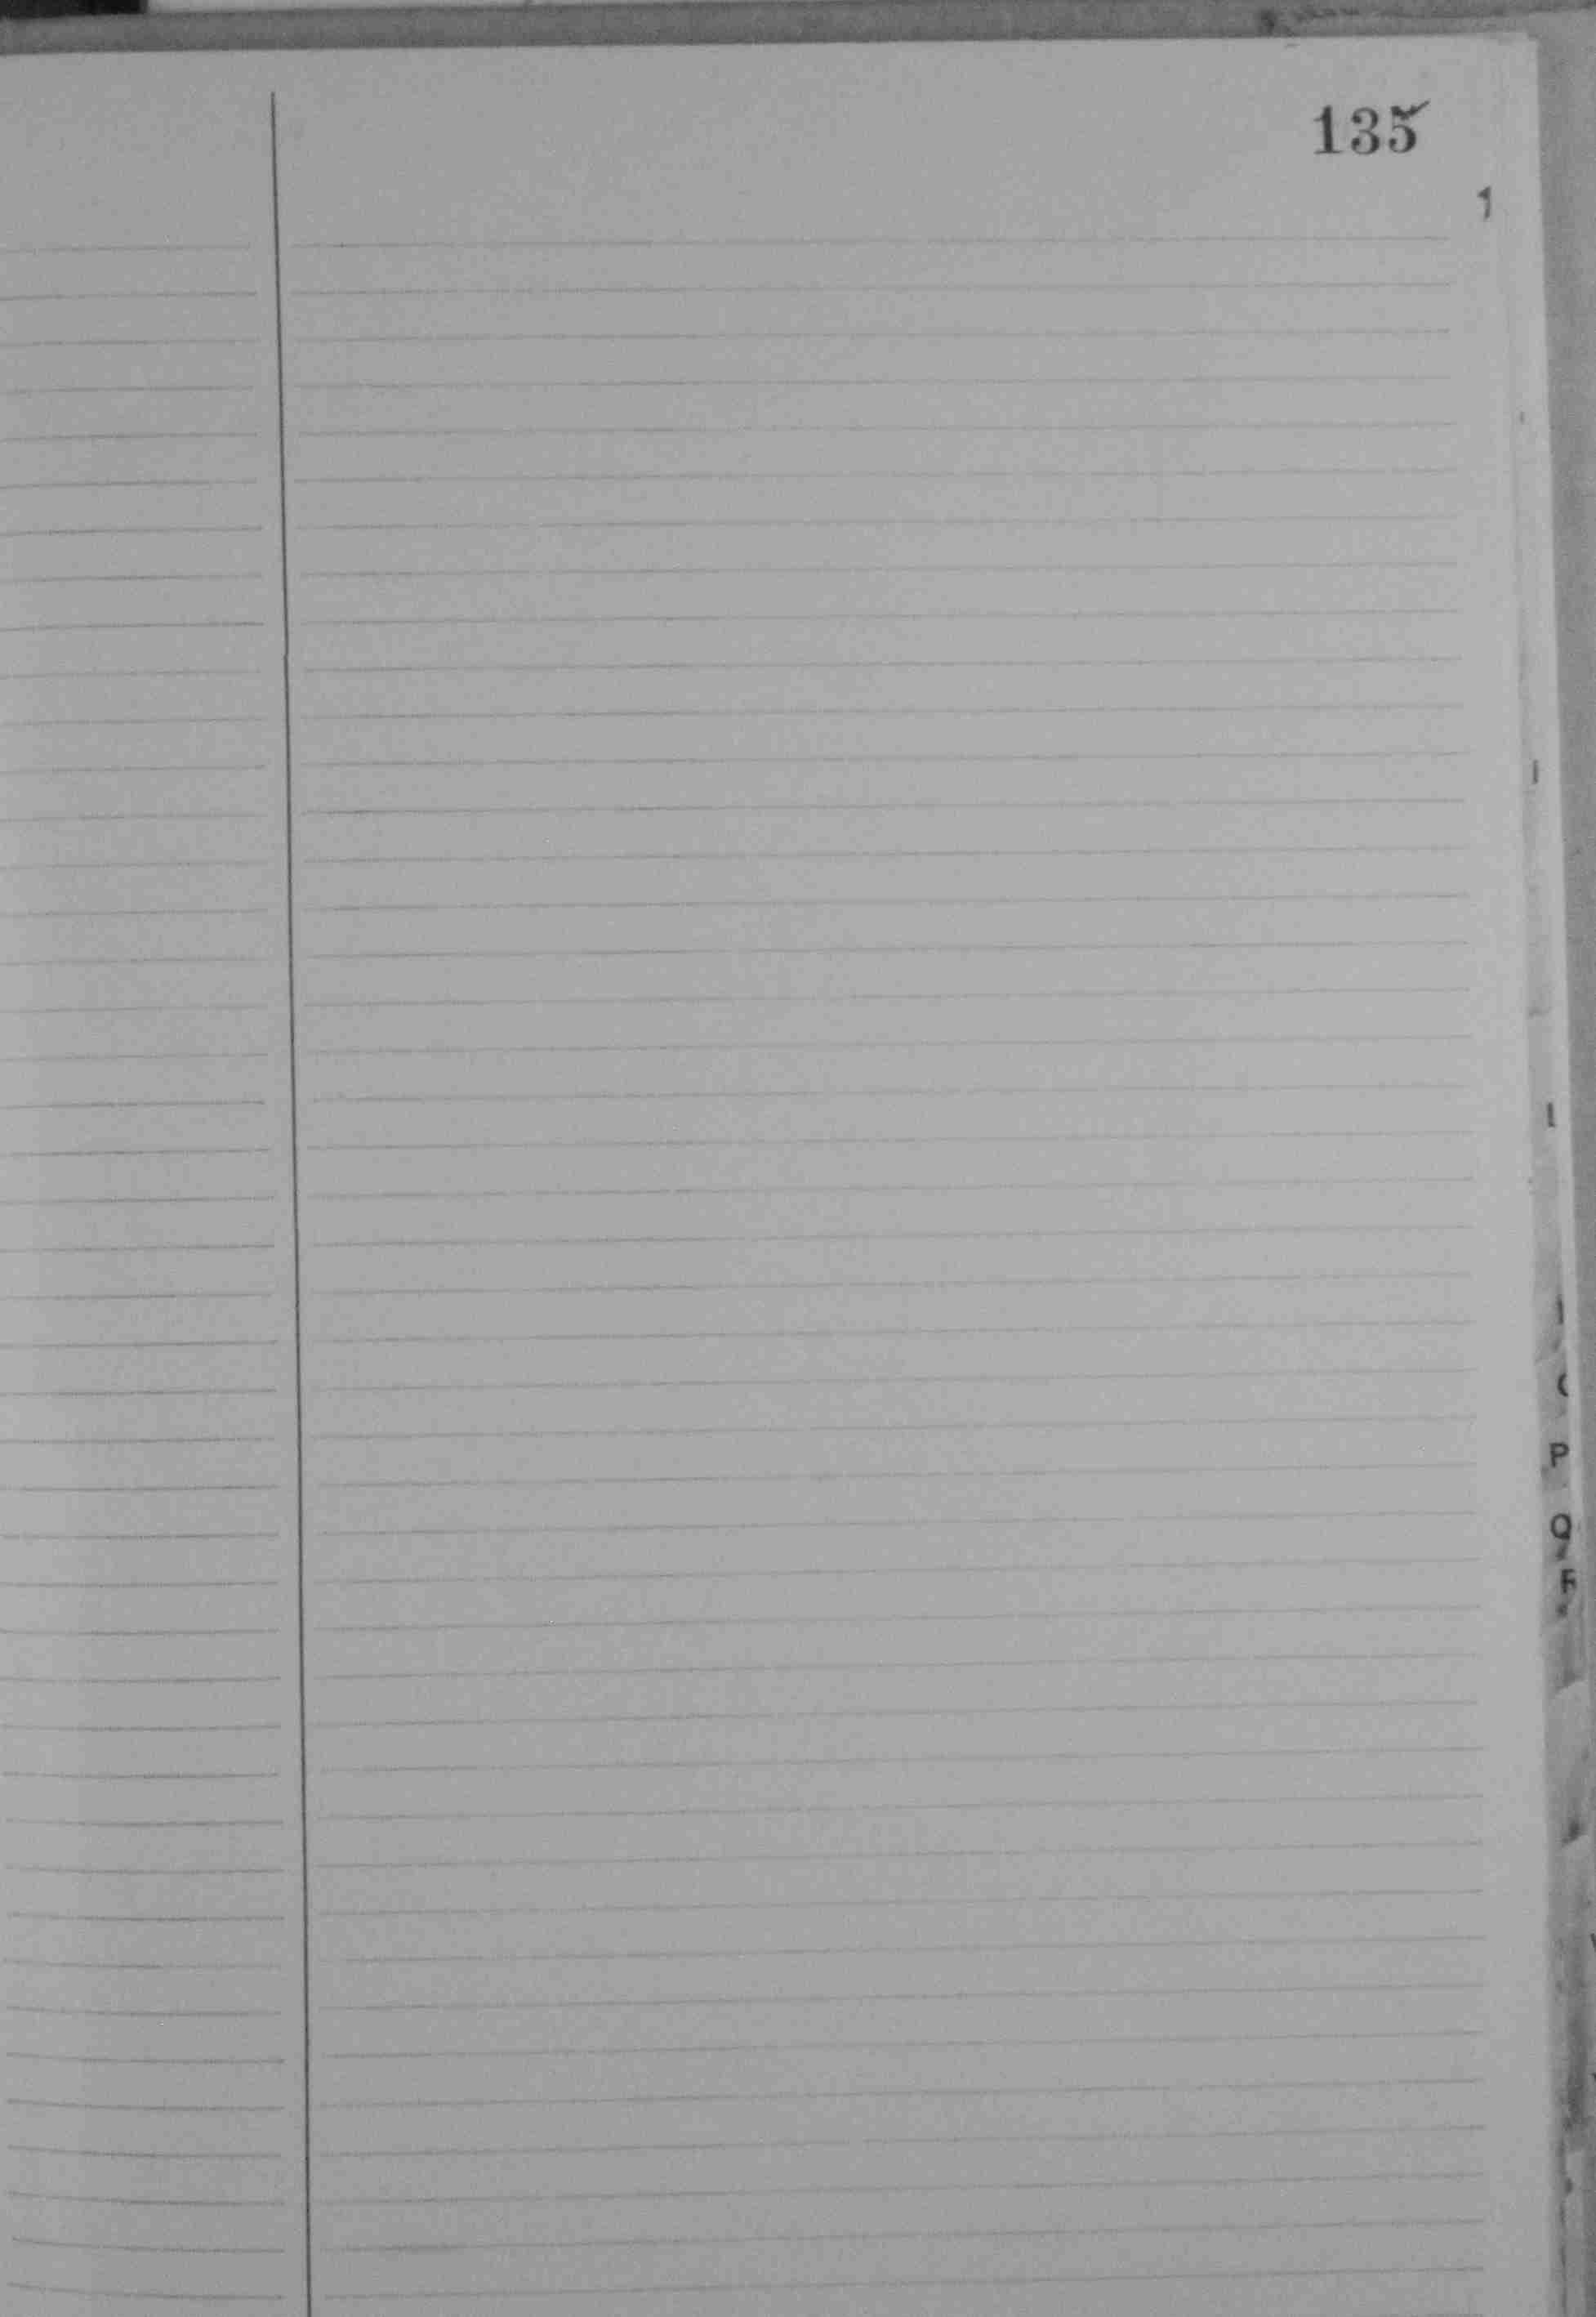 135
1
P
Q
R